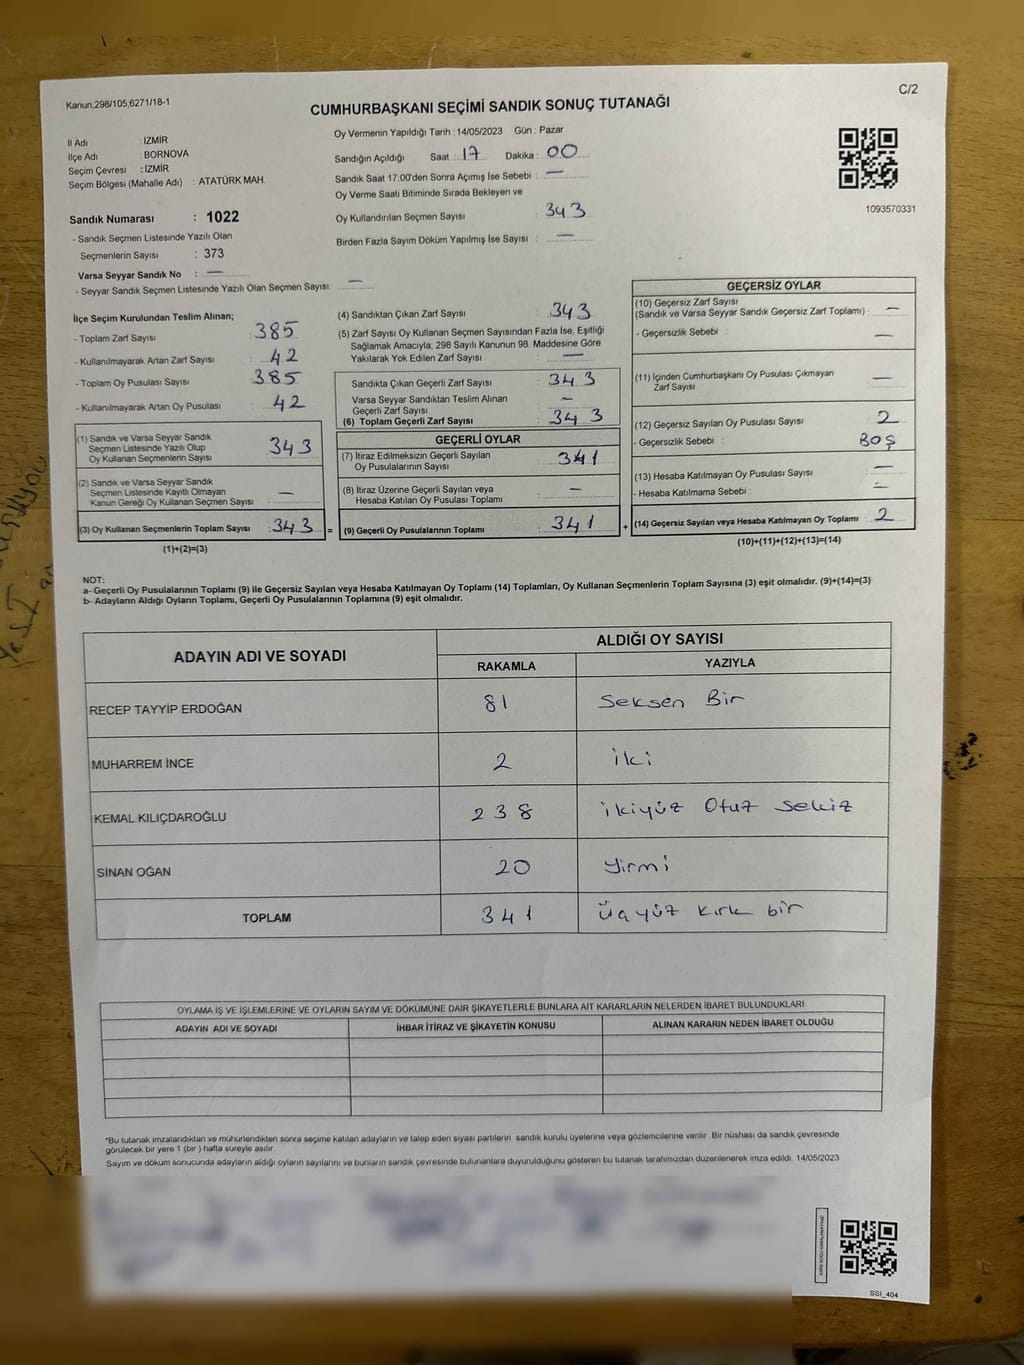 Kanun;298/105,6271/18-1
C/2
CUMHURBAŞKANI SEÇİMİ SANDIK SONUÇ TUTANAĞI
İl Adı : İZMİR
İlçe Adı : BORNOVA
Seçim Çevresi : İZMİR
Seçim Bölgesi (Mahalle Adı) : ATATÜRK MAH.
Oy Vermenin Yapıldığı Tarih : 14/05/2023 Gün : Pazar
Sandığın Açıldığı Saat : 17 Dakika : 00
Sandık Saat 17:00'den Sonra Açımış İse Sebebi : —
Oy Verme Saati Bitiminde Sırada Bekleyen ve
Oy Kullandırılan Seçmen Sayısı : 343
Birden Fazla Sayım Döküm Yapılmış İse Sayısı : —
1093570331
Sandık Numarası : 1022
- Sandık Seçmen Listesinde Yazılı Olan
Seçmenlerin Sayısı : 373
Varsa Seyyar Sandık No : —
- Seyyar Sandık Seçmen Listesinde Yazılı Olan Seçmen Sayısı: —
İlçe Seçim Kurulundan Teslim Alınan;
- Toplam Zarf Sayısı : 385
- Kullanılmayarak Artan Zarf Sayısı : 42
- Toplam Oy Pusulası Sayısı : 385
- Kullanılmayarak Artan Oy Pusulası : 42
(1) Sandık ve Varsa Seyyar Sandık
Seçmen Listesinde Yazılı Olup
Oy Kullanan Seçmenlerin Sayısı : 343
(2) Sandık ve Varsa Seyyar Sandık
Seçmen Listesinde Kayıtlı Olmayan
Kanun Gereği Oy Kullanan Seçmen Sayısı : —
(3) Oy Kullanan Seçmenlerin Toplam Sayısı : 343 =
(1)+(2)=(3)
(4) Sandıktan Çıkan Zarf Sayısı : 343
(5) Zarf Sayısı Oy Kullanan Seçmen Sayısından Fazla İse, Eşitliği
Sağlamak Amacıyla, 298 Sayılı Kanunun 98. Maddesine Göre
Yakılarak Yok Edilen Zarf Sayısı : —
Sandıkta Çıkan Geçerli Zarf Sayısı : 343
Varsa Seyyar Sandıktan Teslim Alınan
Geçerli Zarf Sayısı : —
(6) Toplam Geçerli Zarf Sayısı : 343
GEÇERLİ OYLAR
(7) İtiraz Edilmeksizin Geçerli Sayılan
Oy Pusulalarının Sayısı : 341
(8) İtiraz Üzerine Geçerli Sayılan veya
Hesaba Katılan Oy Pusulası Toplamı : —
(9) Geçerli Oy Pusulalarının Toplamı : 341 +
GEÇERSİZ OYLAR
(10) Geçersiz Zarf Sayısı
(Sandık ve Varsa Seyyar Sandık Geçersiz Zarf Toplamı) : —
- Geçersizlik Sebebi : —
(11) İçinden Cumhurbaşkanı Oy Pusulası Çıkmayan
Zarf Sayısı : —
(12) Geçersiz Sayılan Oy Pusulası Sayısı : 2
- Geçersizlik Sebebi : BOŞ
(13) Hesaba Katılmayan Oy Pusulası Sayısı : —
- Hesaba Katılmama Sebebi : —
(14) Geçersiz Sayılan veya Hesaba Katılmayan Oy Toplamı : 2
(10)+(11)+(12)+(13)=(14)
NOT:
a- Geçerli Oy Pusulalarının Toplamı (9) ile Geçersiz Sayılan veya Hesaba Katılmayan Oy Toplamı (14) Toplamları, Oy Kullanan Seçmenlerin Toplam Sayısına (3) eşit olmalıdır. (9)+(14)=(3)
b- Adayların Aldığı Oyların Toplamı, Geçerli Oy Pusulalarının Toplamına (9) eşit olmalıdır.
ADAYIN ADI VE SOYADI
ALDIĞI OY SAYISI
RAKAMLA YAZIYLA
RECEP TAYYİP ERDOĞAN 81 Seksen Bir
MUHARREM İNCE 2 İki
KEMAL KILIÇDAROĞLU 238 ikiyüz Otuz Sekiz
SİNAN OĞAN 20 Yirmi
TOPLAM 341 Üçyüz kırk bir
OYLAMA İŞ VE İŞLEMLERİNE VE OYLARIN SAYIM VE DÖKÜMÜNE DAİR ŞİKAYETLERLE BUNLARA AİT KARARLARIN NELERDEN İBARET BULUNDUKLARI
ADAYIN ADI VE SOYADI İHBAR İTİRAZ VE ŞİKAYETİN KONUSU ALINAN KARARIN NEDEN İBARET OLDUĞU
*Bu tutanak imzalandıktan ve mühürlendikten sonra seçime katılan adayların ve talep eden siyasi partilerin sandık kurulu üyelerine veya gözlemcilerine verilir. Bir nüshası da sandık çevresinde
görülecek bir yere 1 (bir) hafta süreyle asılır.
Sayım ve döküm sonucunda adayların aldığı oyların sayılarını ve bunların sandık çevresinde bulunanlara duyurulduğunu gösteren bu tutanak tarafımızdan düzenlenerek imza edildi. 14/05/2023
SSI_404